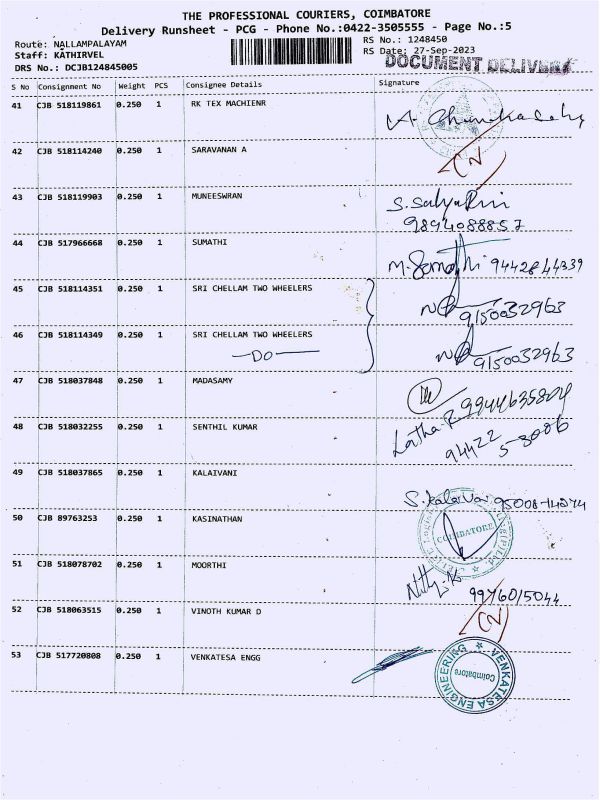 THE PROFESSIONAL COURIERS, COIMBATORE
Delivery Runsheet - PCG - Phone No.:0422-3505555 - Page No.:5
Route: NALLAMPALAYAM
RS No.: 1248450
Staff: KATHIRVEL
RS Date: 27-Sep-2023
DRS No.: DCJB124845005
DOCUMENT DELIVERY
S No Consignment No Weight PCS Consignee Details Signature
41 CJB 518119861 0.250 1 RK TEX MACHIENR
42 CJB 518114240 0.250 1 SARAVANAN A
43 CJB 518119903 0.250 1 MUNEESWRAN
9894088857
44 CJB 517966668 0.250 1 SUMATHI M. Sumathi 9442844339
45 CJB 518114351 0.250 1 SRI CHELLAM TWO WHEELERS
9150032963
46 CJB 518114349 0.250 1 SRI CHELLAM TWO WHEELERS
—DO— 9150032963
47 CJB 518037848 0.250 1 MADASAMY
9944635804
48 CJB 518032255 0.250 1 SENTHIL KUMAR Latha. R
94422
5-3006
49 CJB 518037865 0.250 1 KALAIVANI
S. Kalaivani 95008-14274
50 CJB 89763253 0.250 1 KASINATHAN
COIMBATORE
51 CJB 518078702 0.250 1 MOORTHI
9976015044
52 CJB 518063515 0.250 1 VINOTH KUMAR D
53 CJB 517720808 0.250 1 VENKATESA ENGG
VENKATESA ENGINEERING
Coimbatore